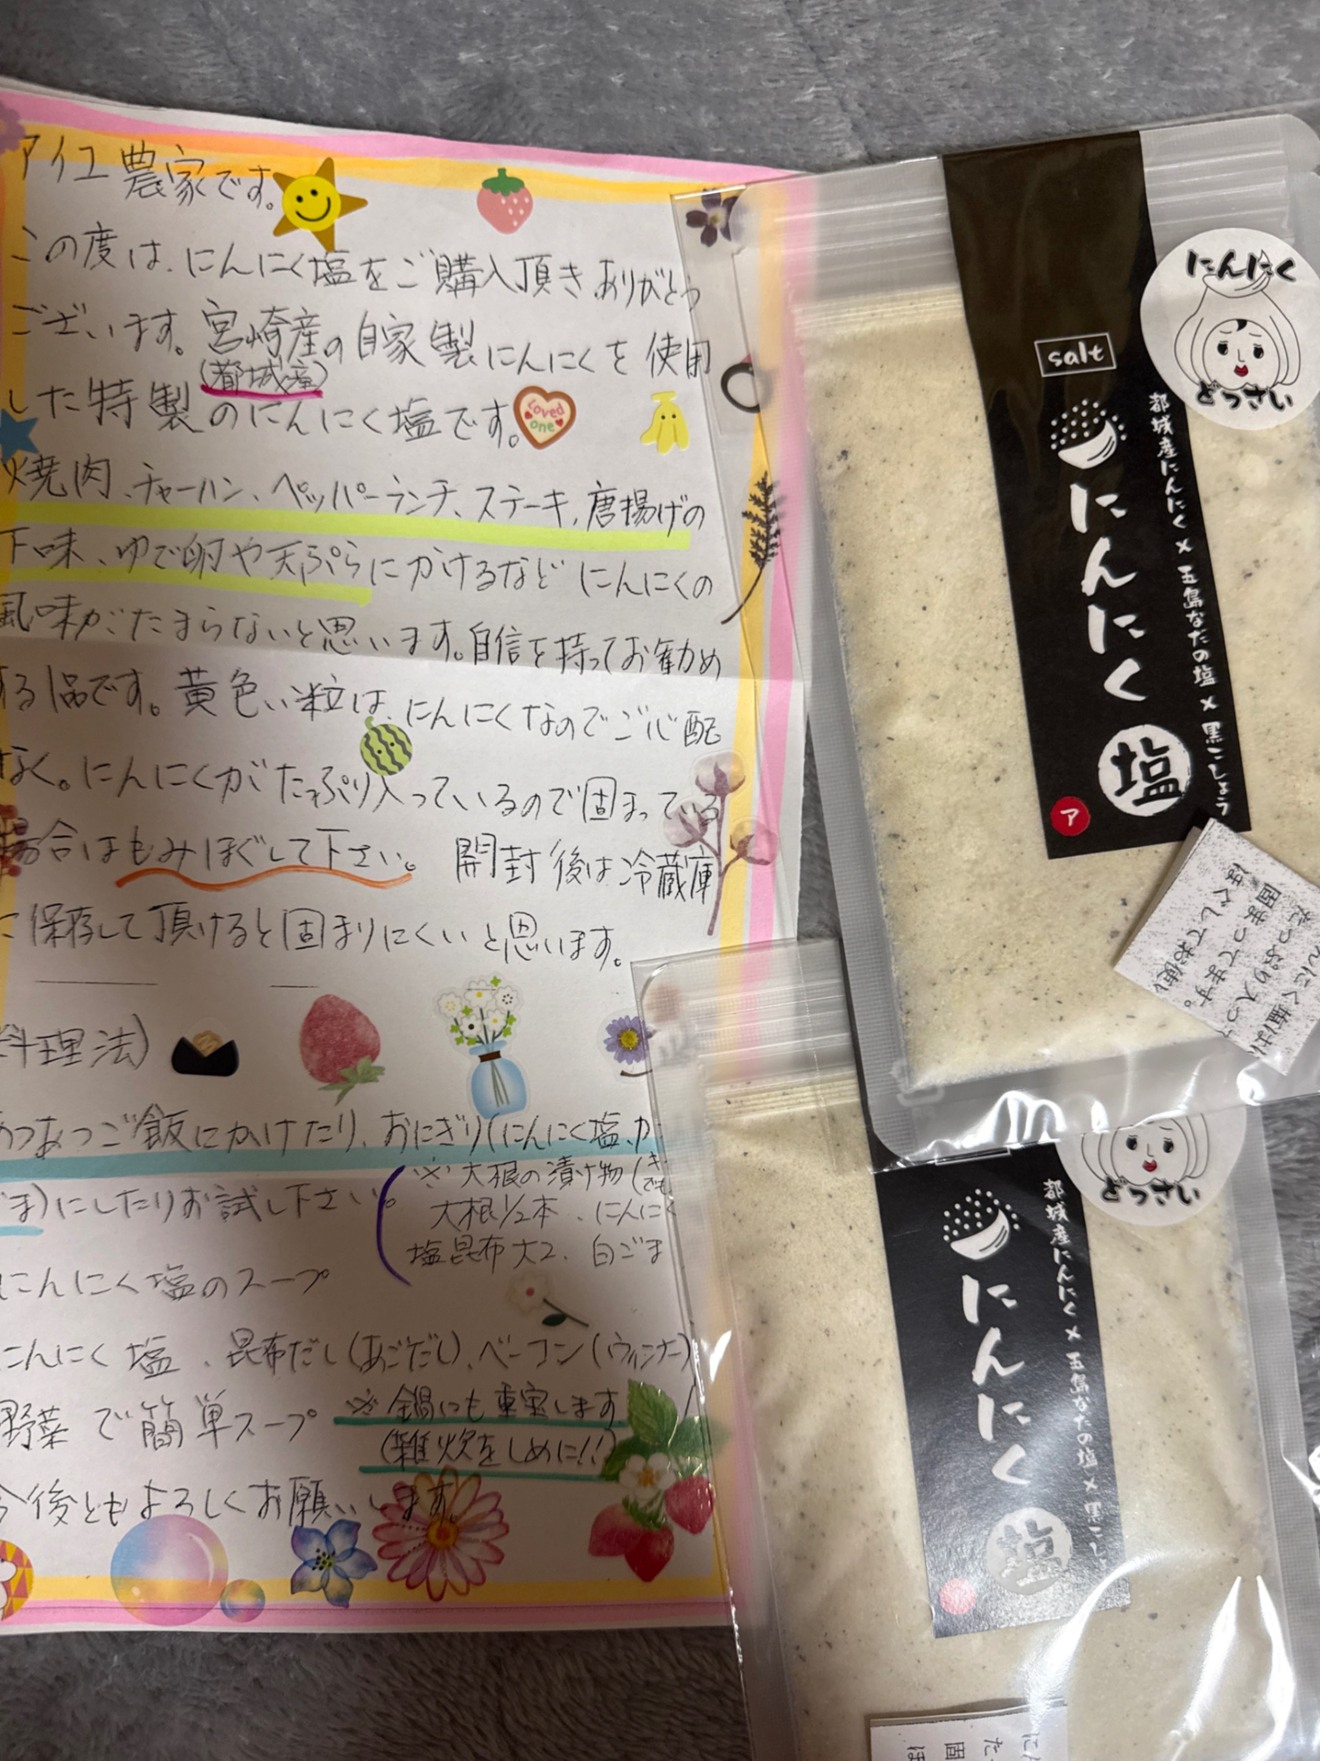 アイユ農家です。
この度は、にんにく塩をご購入頂きありがとう
ございます。宮崎産の自家製にんにくを使用
(都城産)
した特製のにんにく塩です。
Loved one
焼肉、チャーハン、ペッパーランチ、ステーキ、唐揚げの
下味、ゆで卵や天ぷらにかけるなどにんにくの
風味がたまらないと思います。自信を持ってお勧め
する1品です。黄色い粒は、にんにくなのでご心配
なく。にんにくがたっぷり入っているので固まっている
場合はもみほぐして下さい。 開封後は冷蔵庫
に保存して頂けると固まりにくいと思います。
料理法)
あつあつご飯にかけたり、おにぎり(にんにく塩、か
ま)にしたりお試し下さい。
※大根の漬け物(
大根1/2本、にんにく
塩昆布大2、白ごま
にんにく塩のスープ
にんにく塩、昆布だし(あごだし)、ベーコン(ウィンナー)
野菜で簡単スープ
※鍋にも重宝します
(雑炊をしめに!!)
今後ともよろしくお願いします。
にんにく
どっさい
salt
にんにく
塩
ア
都城産にんにく×五島なだの塩×黒こしょう
んにく塩は
たっぷり入っ
固まってます。
ほぐしてお使い
どっさい
にんにく
塩
都城産にんにく×五島なだの塩×黒こし
にん
た
固
ほ